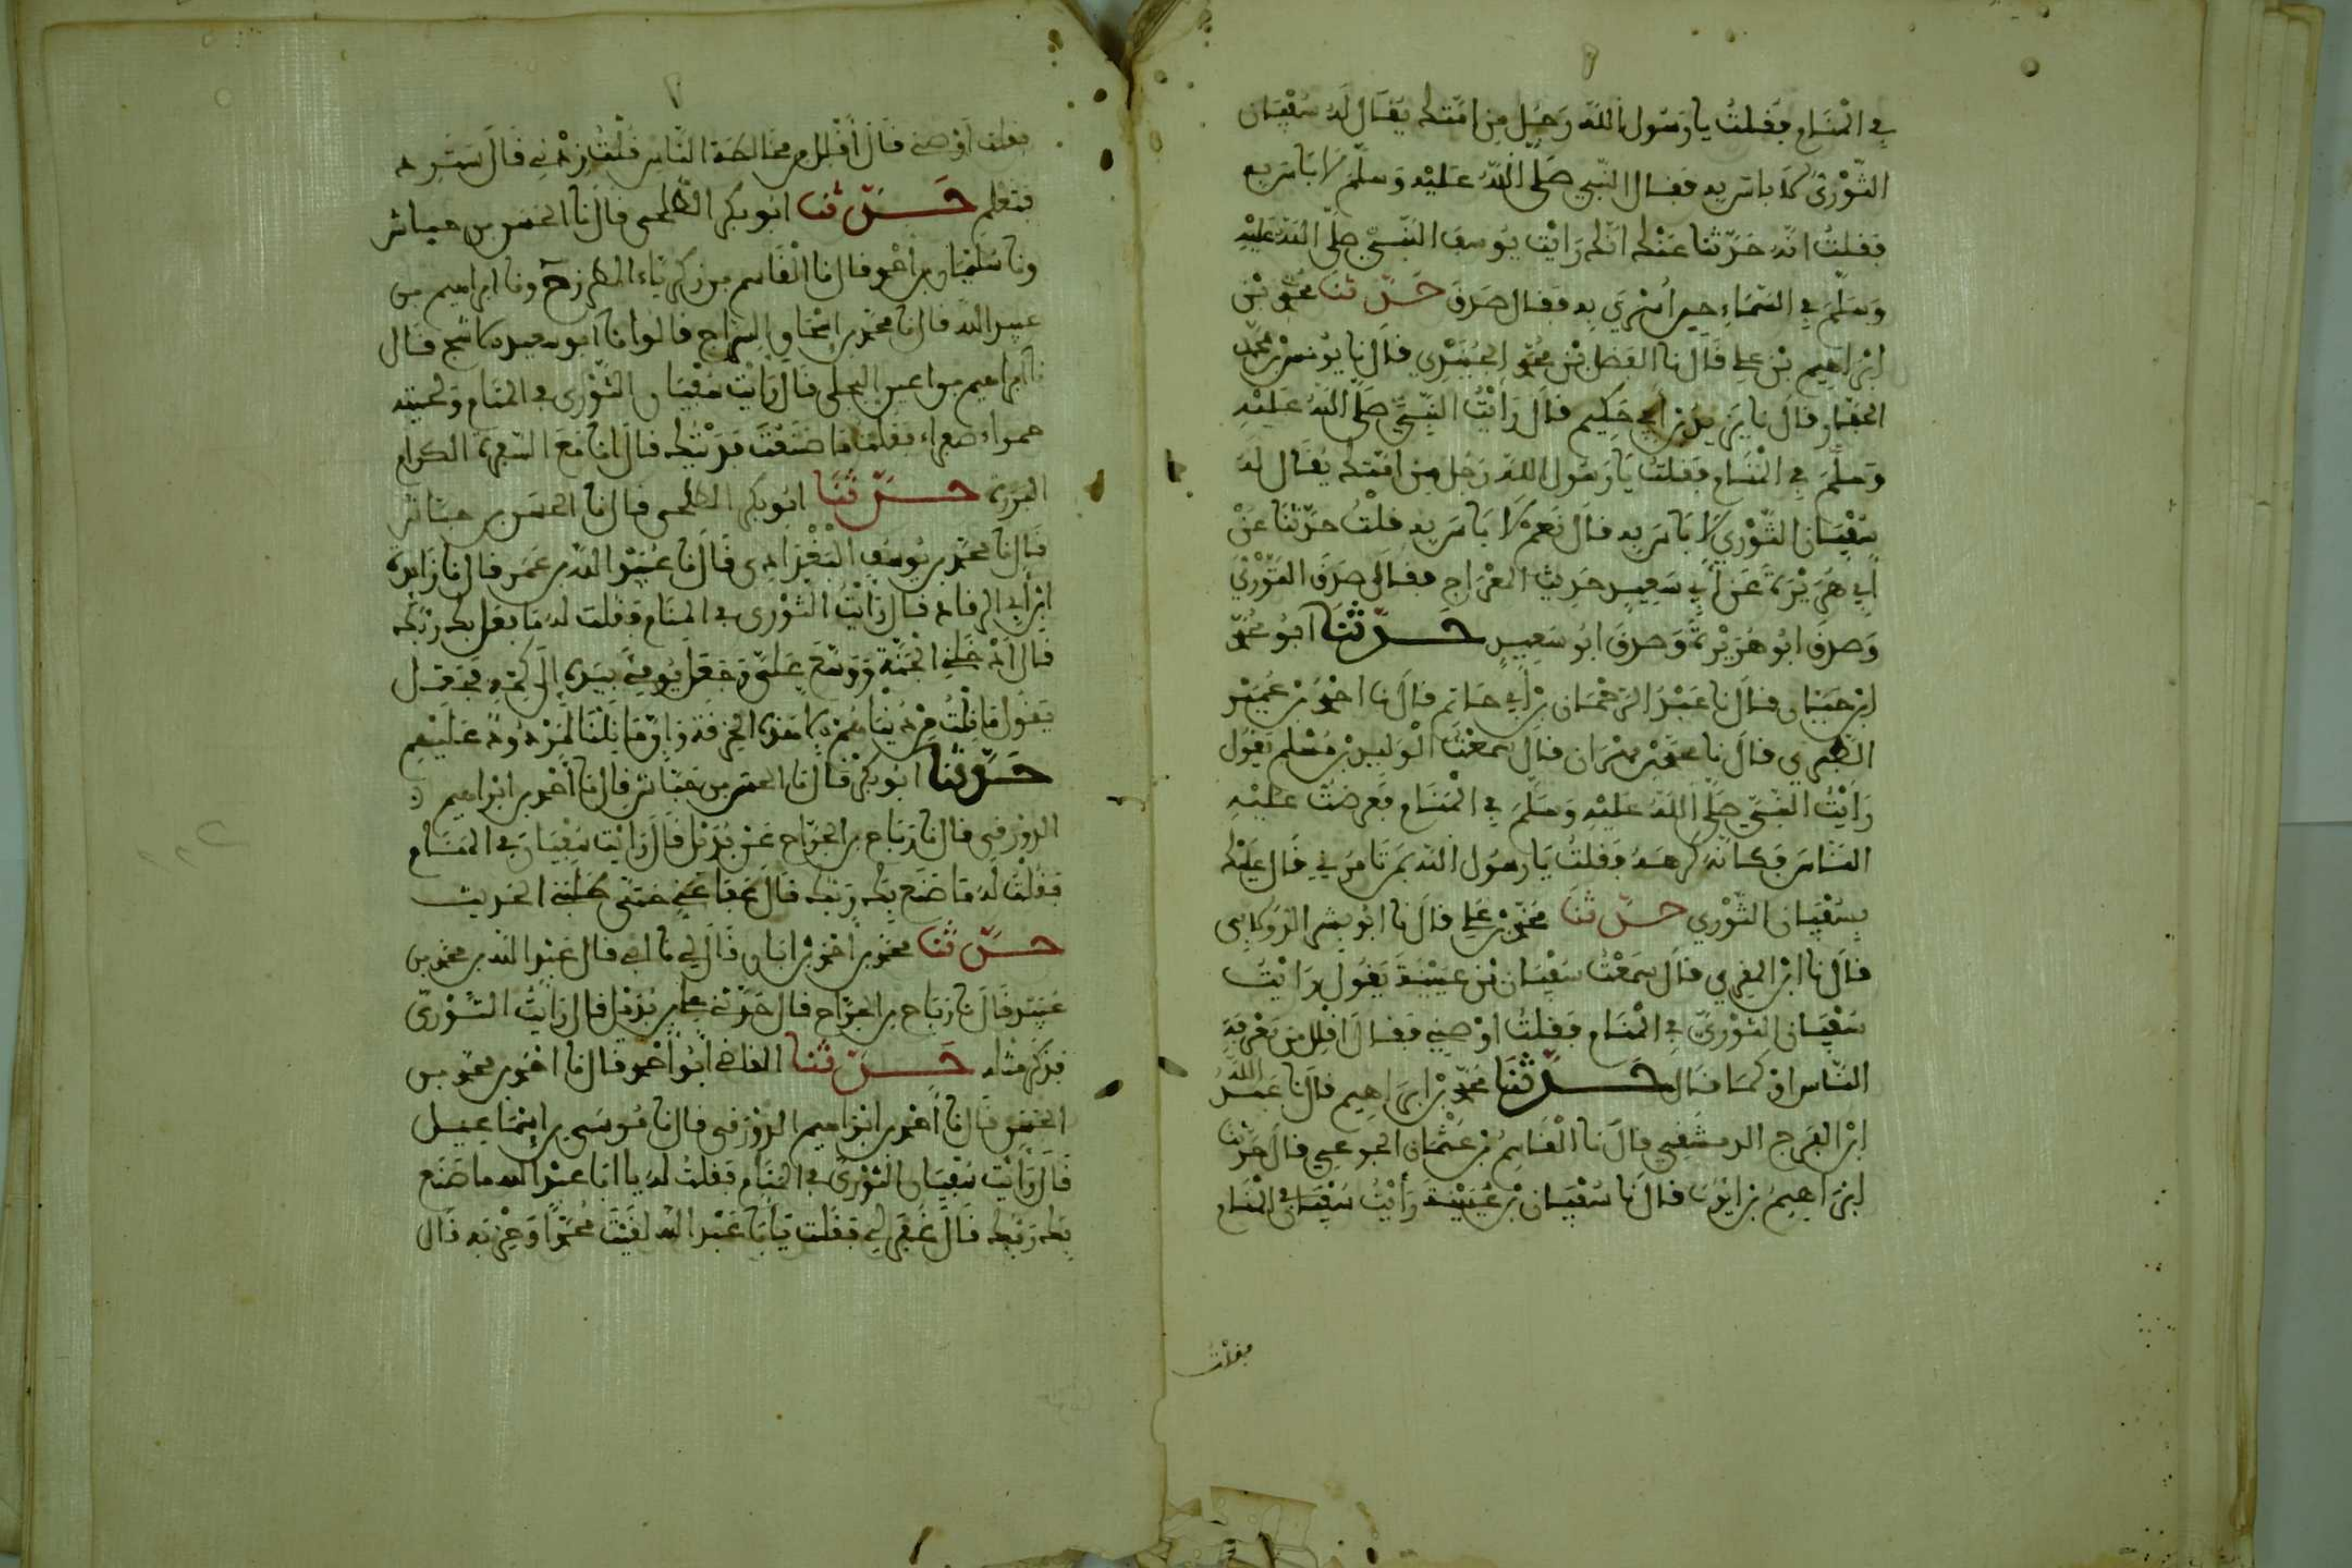 في المنام فقلت يا رسول الله رجل من امتك يقال له سفيان
الثوري لا باس به فقال النبي صلى الله عليه وسلم لا باس به
فقلت انه حدثنا عنك انك رايت يوسف النبي صلى الله عليه
وسلم في السماء حين أسري به فقال صدق حدثنا محمد بن
ابراهيم بن علي قال نا الفضل بن محمد الجندي قال نا يونس بن محمد
قال نا يزيد بن أبي حكيم قال رأيت النبي صلى الله عليه
وسلم في المنام فقلت يا رسول الله رجل من امتك يقال له
سفيان الثوري لا باس به قال نعم لا باس به قلت حدثنا عن
أبي هريرة عن أبي سعيد حديث المعراج فقال صدق الثوري
وصدق ابو هريرة وصدق ابو سعيد حدثنا ابو محمد
ابن حيان قال نا عبد الرحمان بن أبي حاتم قال نا احمد بن عمير
الطبري قال نا محمد بن مهران قال سمعت الوليد بن مسلم يقول
رأيت النبي صلى الله عليه وسلم في المنام فعرضت عليه
الناس فكأنه كرهه فقلت يا رسول الله بمن تامرني قال عليك
بسفيان الثوري حدثنا محمد بن علي قال نا ابو بشر الدولابي
قال نا ابن المقري قال سمعت سفيان بن عيينة يقول رايت
سفيان الثوري في المنام فقلت اوصني فقال اقلل من معرفة
الناس او كما قال حدثنا محمد بن ابراهيم قال نا عبد الله
ابن الفرج الدمشقي قال نا القاسم بن عثمان الجوعي قال حدثنا
ابراهيم بن ايوب قال نا سفيان بن عيينة رأيت سفيان في المنام
فقلت
فقلت أوصني قال أقلل من مخالطة الناس قلت زدني قال سترد
فتعلم حدثنا ابو بكر الطلحي قال نا الحسن بن حباش
ونا سليمان بن أحمد قال نا القاسم بن زكرياء المطرز ح ونا ابراهيم بن
عبد الله قال نا محمد بن إسحاق السراج قالوا نا أبو سعيد الاشج قال
نا ابراهيم بن اعين البجلي قال رأيت سفيان الثوري في المنام ولحيته
حمراء صفراء فقلت ما صنعت فديتك قال انا مع السفرة الكرام
البررة حدثنا ابو بكر الطلحي قال نا الحسن بن حباش
قال نا محمد بن يوسف البغدادي قال نا عبيد الله بن عمر قال نا زايدة
ابن أبي الرقاد قال رأيت الثوري في المنام فقلت له ما فعل بك ربك
قال ادخلني الجنة ووسع علي وجعل يومئ بيده إلى كمه فجعل
يقول ما نلت من دنياهم الا هذه الخرقة وانما نلنا لمردود عليهم
حدثنا ابو بكر قال نا الحسن بن حباش قال نا أحمد بن ابراهيم
الدورقي قال نا رباح بن الجراح عن بديل قال رايت سفيان في المنام
فقلت له ما صنع بك ربك قال عفا عني حتى طلبي الحديث
حدثنا محمد بن أحمد بن ابان قال لي قال عبد الله بن محمد بن
عبيد قال نا رباح بن الجراح قال حدثني علي بن بديل قال رأيت الثوري
فذكر مثله حدثنا القاضي ابو أحمد قال نا احمد بن محمد بن
الحسن قال نا أحمد بن ابراهيم الدورقي قال نا موسى بن إسماعيل
قال رأيت سفيان الثوري في المنام فقلت له يا ابا عبد الله ما صنع
بك ربك قال غفر لي فقلت يا با عبد الله لقيت محمدا وحزبه قال